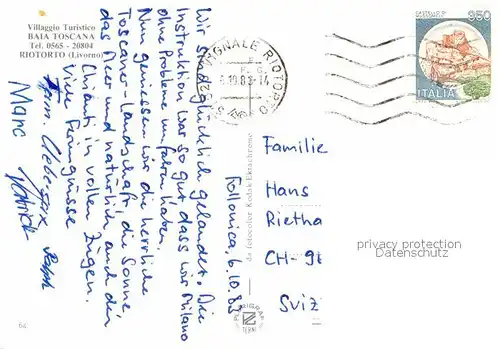 Villaggio Turistico
BAIA TOSCANA
Tel. 0565 - 20804
RIOTORTO (Livorno)
Follonica, 6.10.83
Wir sind glücklich gelandet. Die
Instruktion war so gut, dass wir Milano
ohne Probleme umfahren haben.
Nun geniessen wir die herrliche
Toscaner-Landschaft, die Sonne,
das Meer und natürlich auch den
Chianti in vollen Zügen.
Viele Feriengrüsse
Marc
Patrick
Ralph
RIOTORTO
P. G.
10.83-14
da fotocolor Kodak Ektachrome
TERNI
62
350
ITALIA
Familie
Hans
Rietha
CH-9
Sviz
privacy protection
Datenschutz